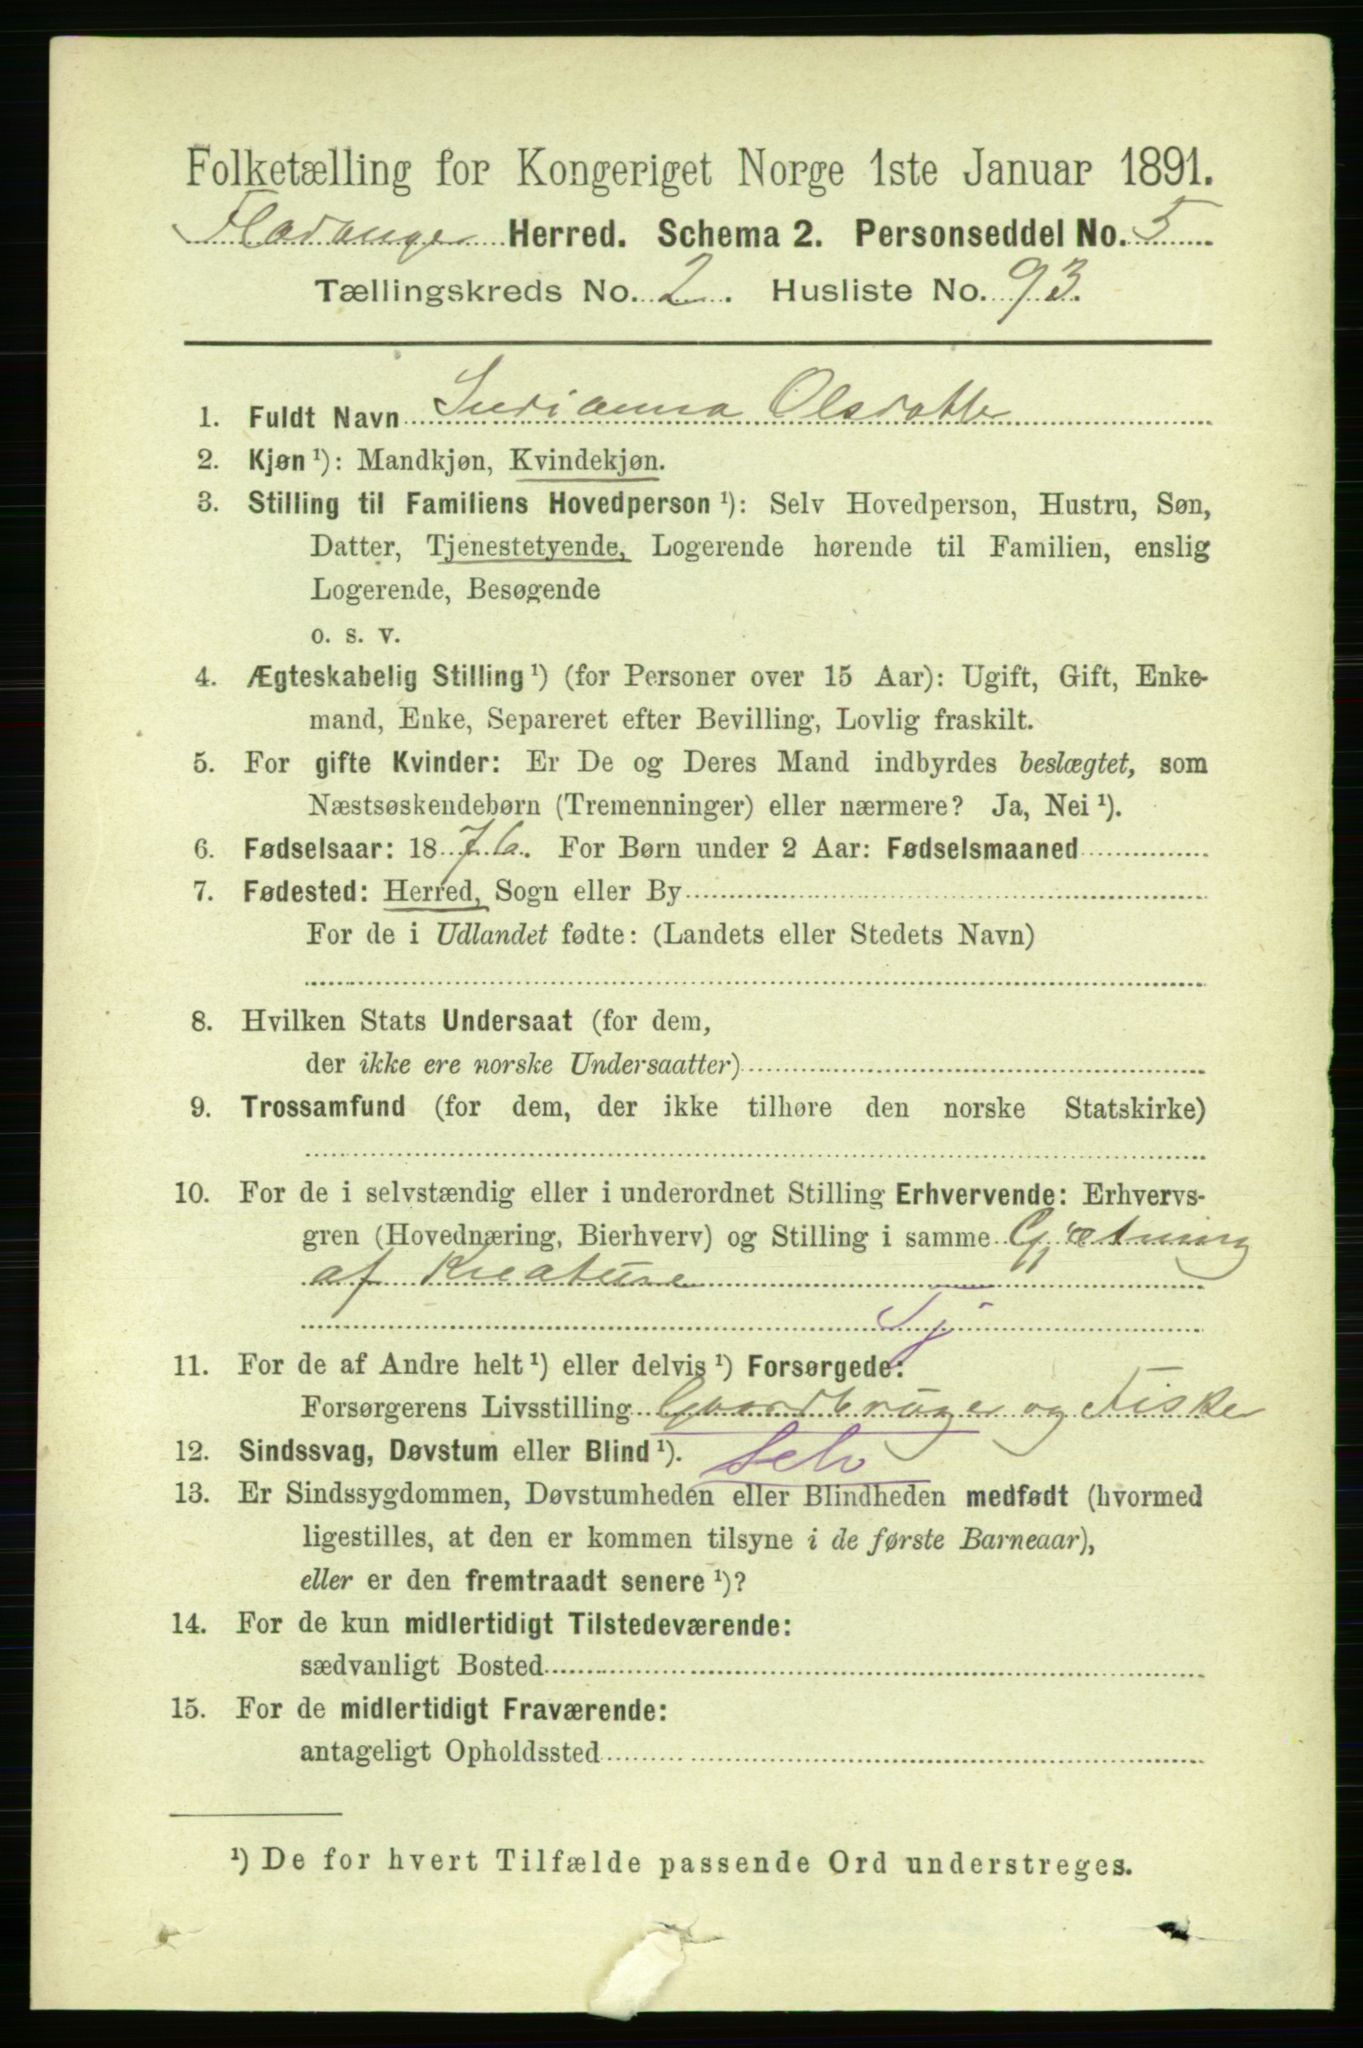 Folketælling for Kongeriget Norge 1ste Januar 1891.
Fladanger Herred. Schema 2. Personseddel No. 5
Tællingskreds No. 2. Husliste No. 93.
1. Fuldt Navn Indianna Olsdatter
2. Kjøn ¹): Mandkjøn, Kvindekjøn.
3. Stilling til Familiens Hovedperson ¹): Selv Hovedperson, Hustru, Søn,
Datter, Tjenestetyende, Logerende hørende til Familien, enslig
Logerende, Besøgende
o. s. v.
4. Ægteskabelig Stilling ¹) (for Personer over 15 Aar): Ugift, Gift, Enke-
mand, Enke, Separeret efter Bevilling, Lovlig fraskilt.
5. For gifte Kvinder: Er De og Deres Mand indbyrdes beslægtet, som
Næstsøskendebørn (Tremenninger) eller nærmere? Ja, Nei ¹).
6. Fødselsaar: 1876. For Børn under 2 Aar: Fødselsmaaned
7. Fødested: Herred, Sogn eller By
For de i Udlandet fødte: (Landets eller Stedets Navn)
8. Hvilken Stats Undersaat (for dem,
der ikke ere norske Undersaatter)
9. Trossamfund (for dem, der ikke tilhøre den norske Statskirke)
10. For de i selvstændig eller i underordnet Stilling Erhvervende: Erhvervs-
gren (Hovednæring, Bierhverv) og Stilling i samme Gjætning
af Kreature
Tj
11. For de af Andre helt ¹) eller delvis ¹) Forsørgede:
Forsørgerens Livsstilling Gaardbruger og Fisker
12. Sindssvag, Døvstum eller Blind ¹). Selv
13. Er Sindssygdommen, Døvstumheden eller Blindheden medfødt (hvormed
ligestilles, at den er kommen tilsyne i de første Barneaar),
eller er den fremtraadt senere ¹)?
14. For de kun midlertidigt Tilstedeværende:
sædvanligt Bosted
15. For de midlertidigt Fraværende:
antageligt Opholdssted
¹) De for hvert Tilfælde passende Ord understreges.